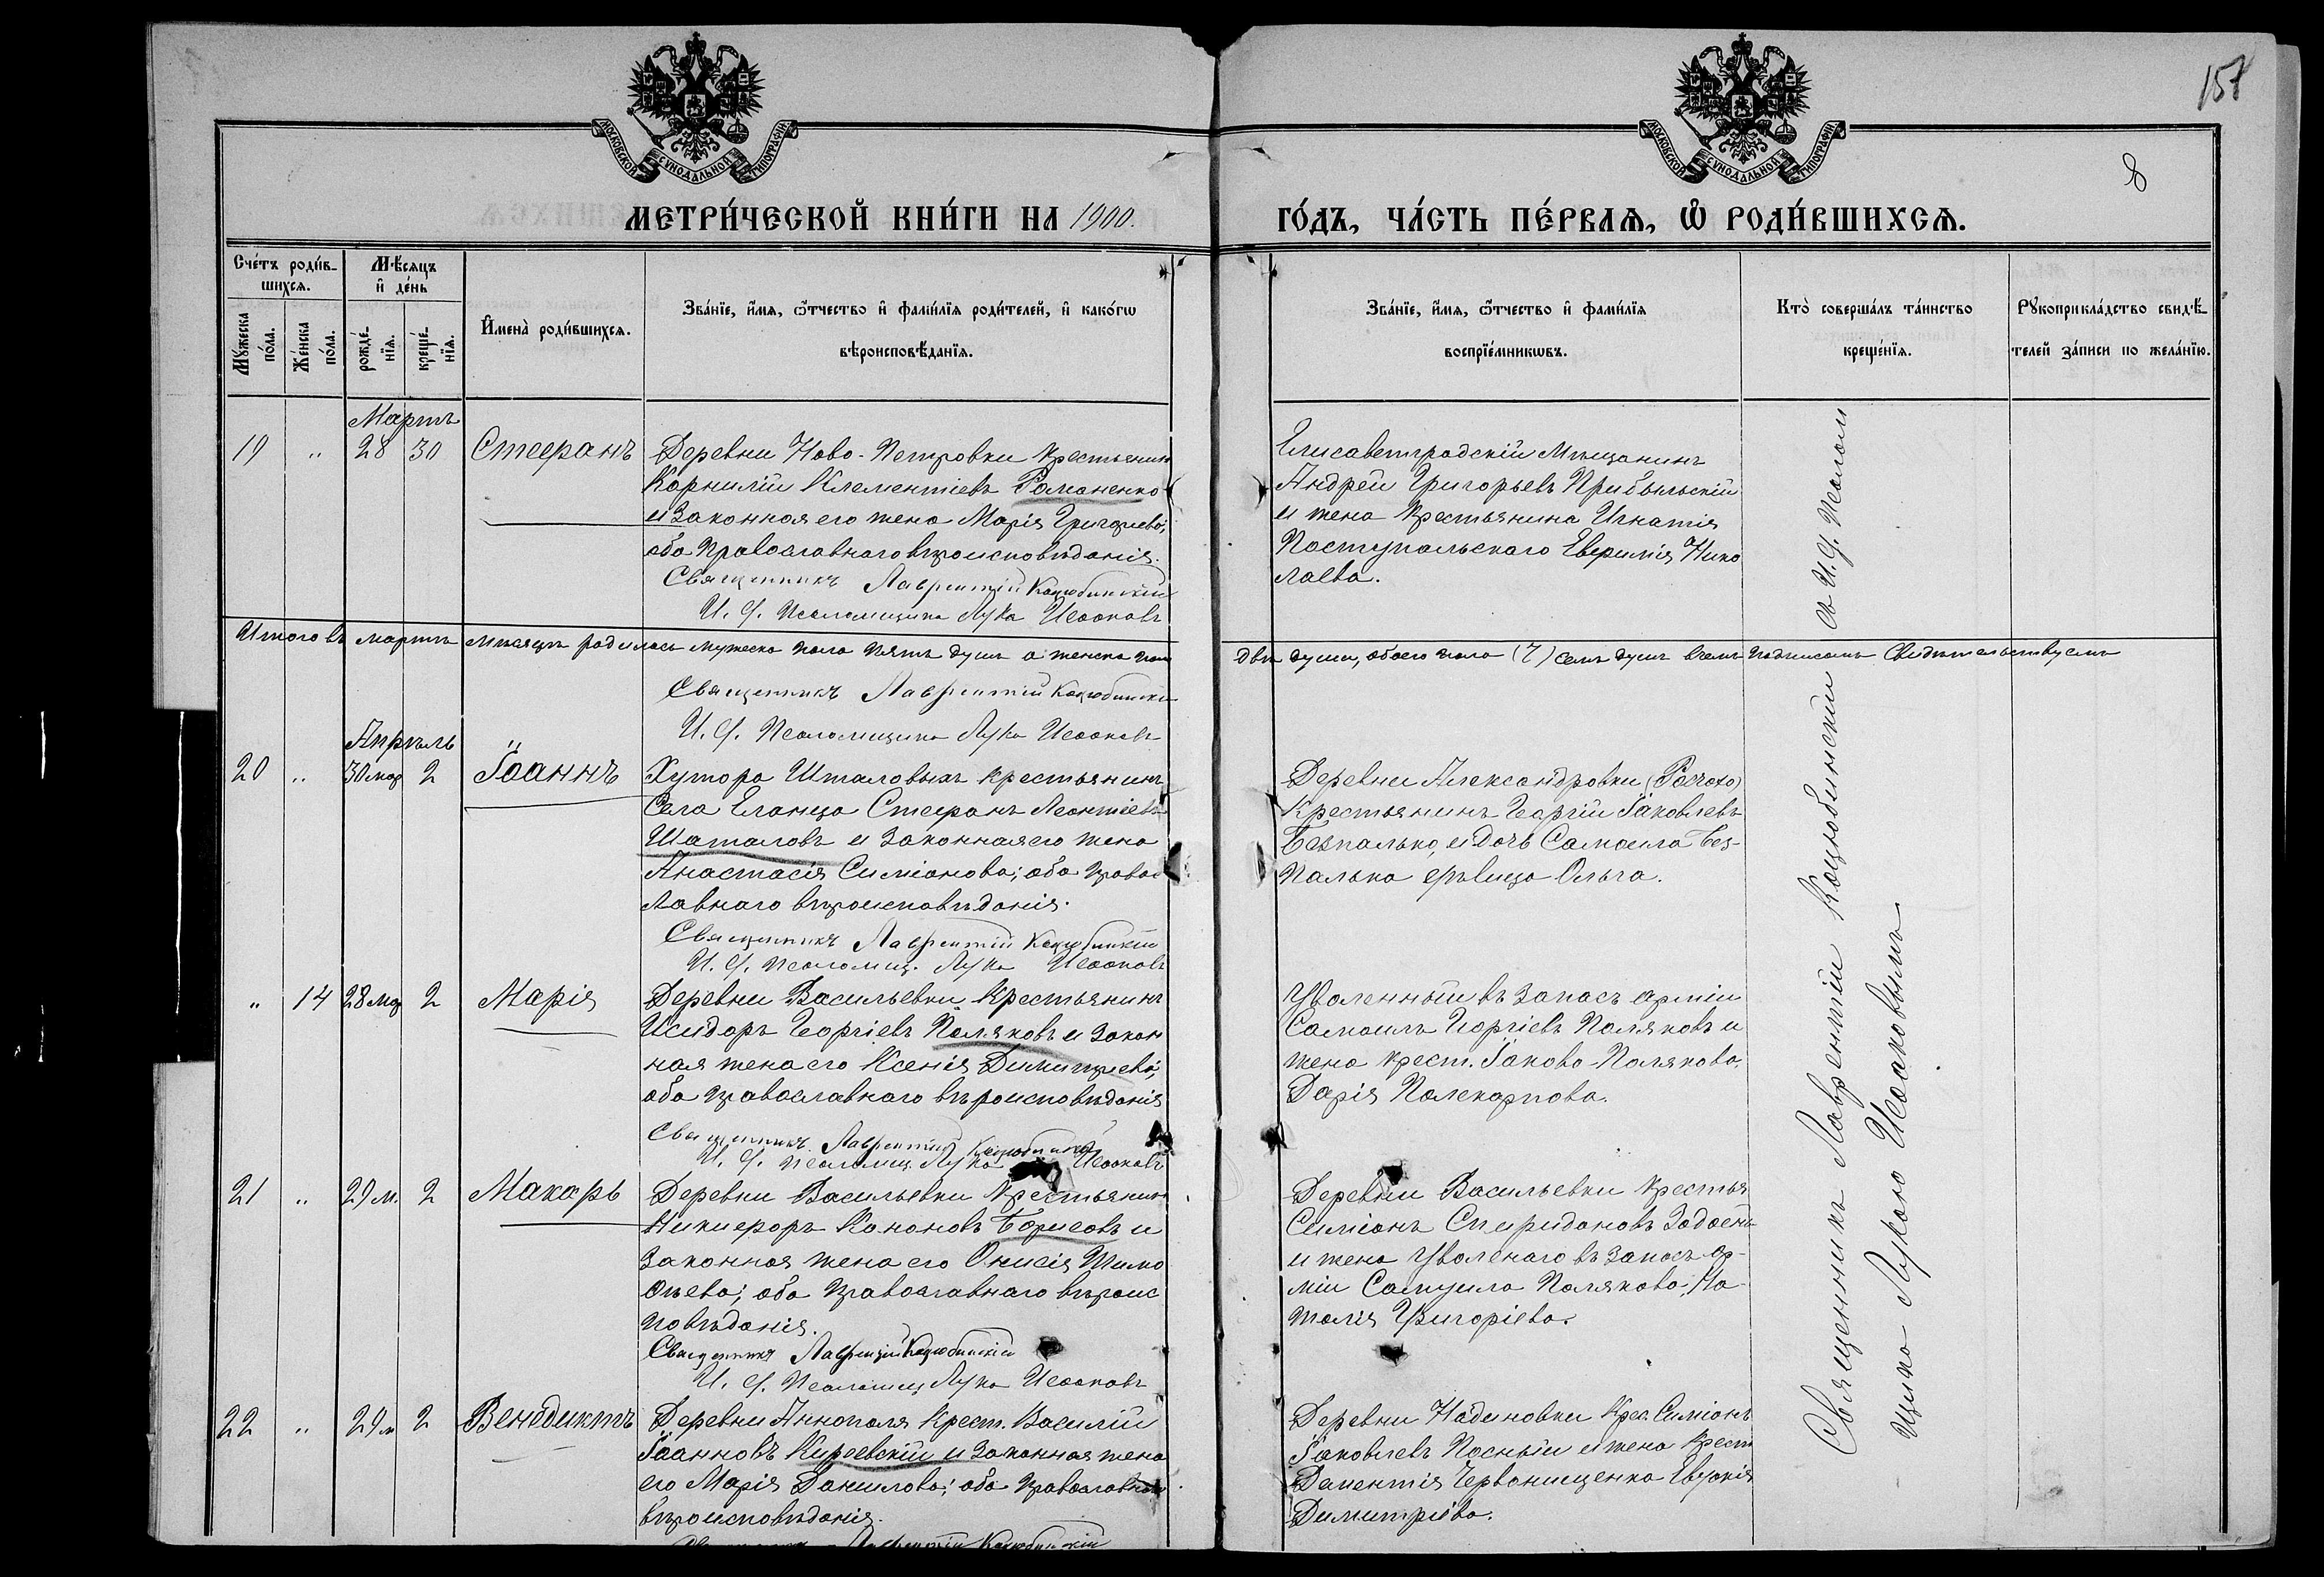 157
8
МОСКОВСКОЙ СѴНОДАЛЬНОЙ ТИПОГРАФІИ
МОСКОВСКОЙ СѴНОДАЛЬНОЙ ТИПОГРАФІИ
МЕТРИ́ЧЕСКОЙ КНИ́ГИ НА 1900.
ГО́ДЪ, ЧА́СТЬ ПЕ́РВАѦ, Ѿ РОДИ́ВШИХСѦ.
Сче́тъ роди́в-
шихсѧ.
Мѣ́сѧцъ
и҆ де́нь
Мꙋ́жеска
по́ла.
Же́нска
по́ла.
рожде́-
нїѧ.
креще́-
нїѧ.
И҆мена̀ роди́вшихсѧ.
Зва́нїе, и҆́мѧ, ѻ҆́тчество и҆ фами́лїѧ роди́телей, и҆ како́гѡ
вѣроисповѣ́данїѧ.
Зва́нїе, и҆́мѧ, ѻ҆́тчество и҆ фами́лїѧ
воспрїе́мникѡвъ.
Кто̀ соверша́лъ та́инство
креще́нїѧ.
Рꙋкоприкла́дство свидѣ́-
телей за́писи по жела́нїю.
Мартъ
19 „ 28 30 Стефанъ
Деревни Ново-Петровки крестьянин
Корнилій Клементіевъ Романенко
и законная его жена Марія Григориева;
оба православнаго вѣроисповѣданія.
Священникъ Лаврентій Коцюбинскій
И. д. Псаломщика Лука Исааковъ
Елисаветградскій Мѣщанинъ
Андрей Григорьевъ Прибыльскій
и жена крестьянина Игнатія
Поступальскаго Евфимія Нико
лаева.
Итого въ мартѣ мѣсяцѣ родилось мужеска пола пять душъ а женска пола
двѣ души, обоего пола (7) семь душъ въ чемъ подписомъ свидѣтельствуемъ
Священникъ Лаврентій Коцюбинскій
И. д. Псаломщика Лука Исааковъ
Апрѣль
20 „ 30 мар 2 Іоаннъ
Хутора Шталовыхъ крестьянинъ
Села Еланца Стефанъ Леонтіевъ
Шаталовъ и законная его жена
Анастасія Симіонова; оба правос
лавнаго вѣроисповѣданія.
Священникъ Лаврентій Коцюбинскій
И. д. Псаломщ. Лука Исааковъ
Деревни Александровки
Крестьянинъ Георгій Іаковлевъ
Безпалько, и дочь Самоила Без-
палька дѣвица Ольга.
„ 14 28 мар 2 Марія
Деревни Васильевки крестьянинъ
Исидоръ Георгіевъ Поляковъ и закон
ная жена его Ксенія Димитриева;
оба православнаго вѣроисповѣданія
Священникъ Лаврентій Коцюбинскій
И. д. Псаломщ. Лука Исааковъ
Уволенный въ запасъ арміи
Самоилъ Георгіевъ Поляковъ и
жена крест. Іакова Полякова,
Дарія Поликарпова.
21 „ 29 м. 2 Макарь
Деревни Васильевки крестьянин
Никифоръ Кононовъ Борисовъ и
законная жена его Онисія Тимо
ѳѣева; оба православнаго вѣроис
повѣданія.
Священникъ Лаврентій Коцюбинскій
И. д. Псаломщ Лука Исааковъ
Деревни Васильевки крестья
Симіонъ Спиридоновъ
и жена уволенаго въ запасъ ар-
міи Самуила Полякова, На
талія Григоріева.
22 „ 29 м 2 Венедиктъ
Деревни Аннополя крест. Василій
Іоанновъ Киреевскій и законная жена
его Марія Данилова; оба православнаго
вѣроисповѣданія.
Священникъ Лаврентій Коцюбинскій
Деревни Надиновки Крес. Симіонъ
Іаковлевъ Посный и жена крест
Дементія Червонищенка Евдокія
Димитріева.
Священникъ Лаврентій Коцюбинскій съ И. д. Псалом
щика Лукою Исааковымъ.